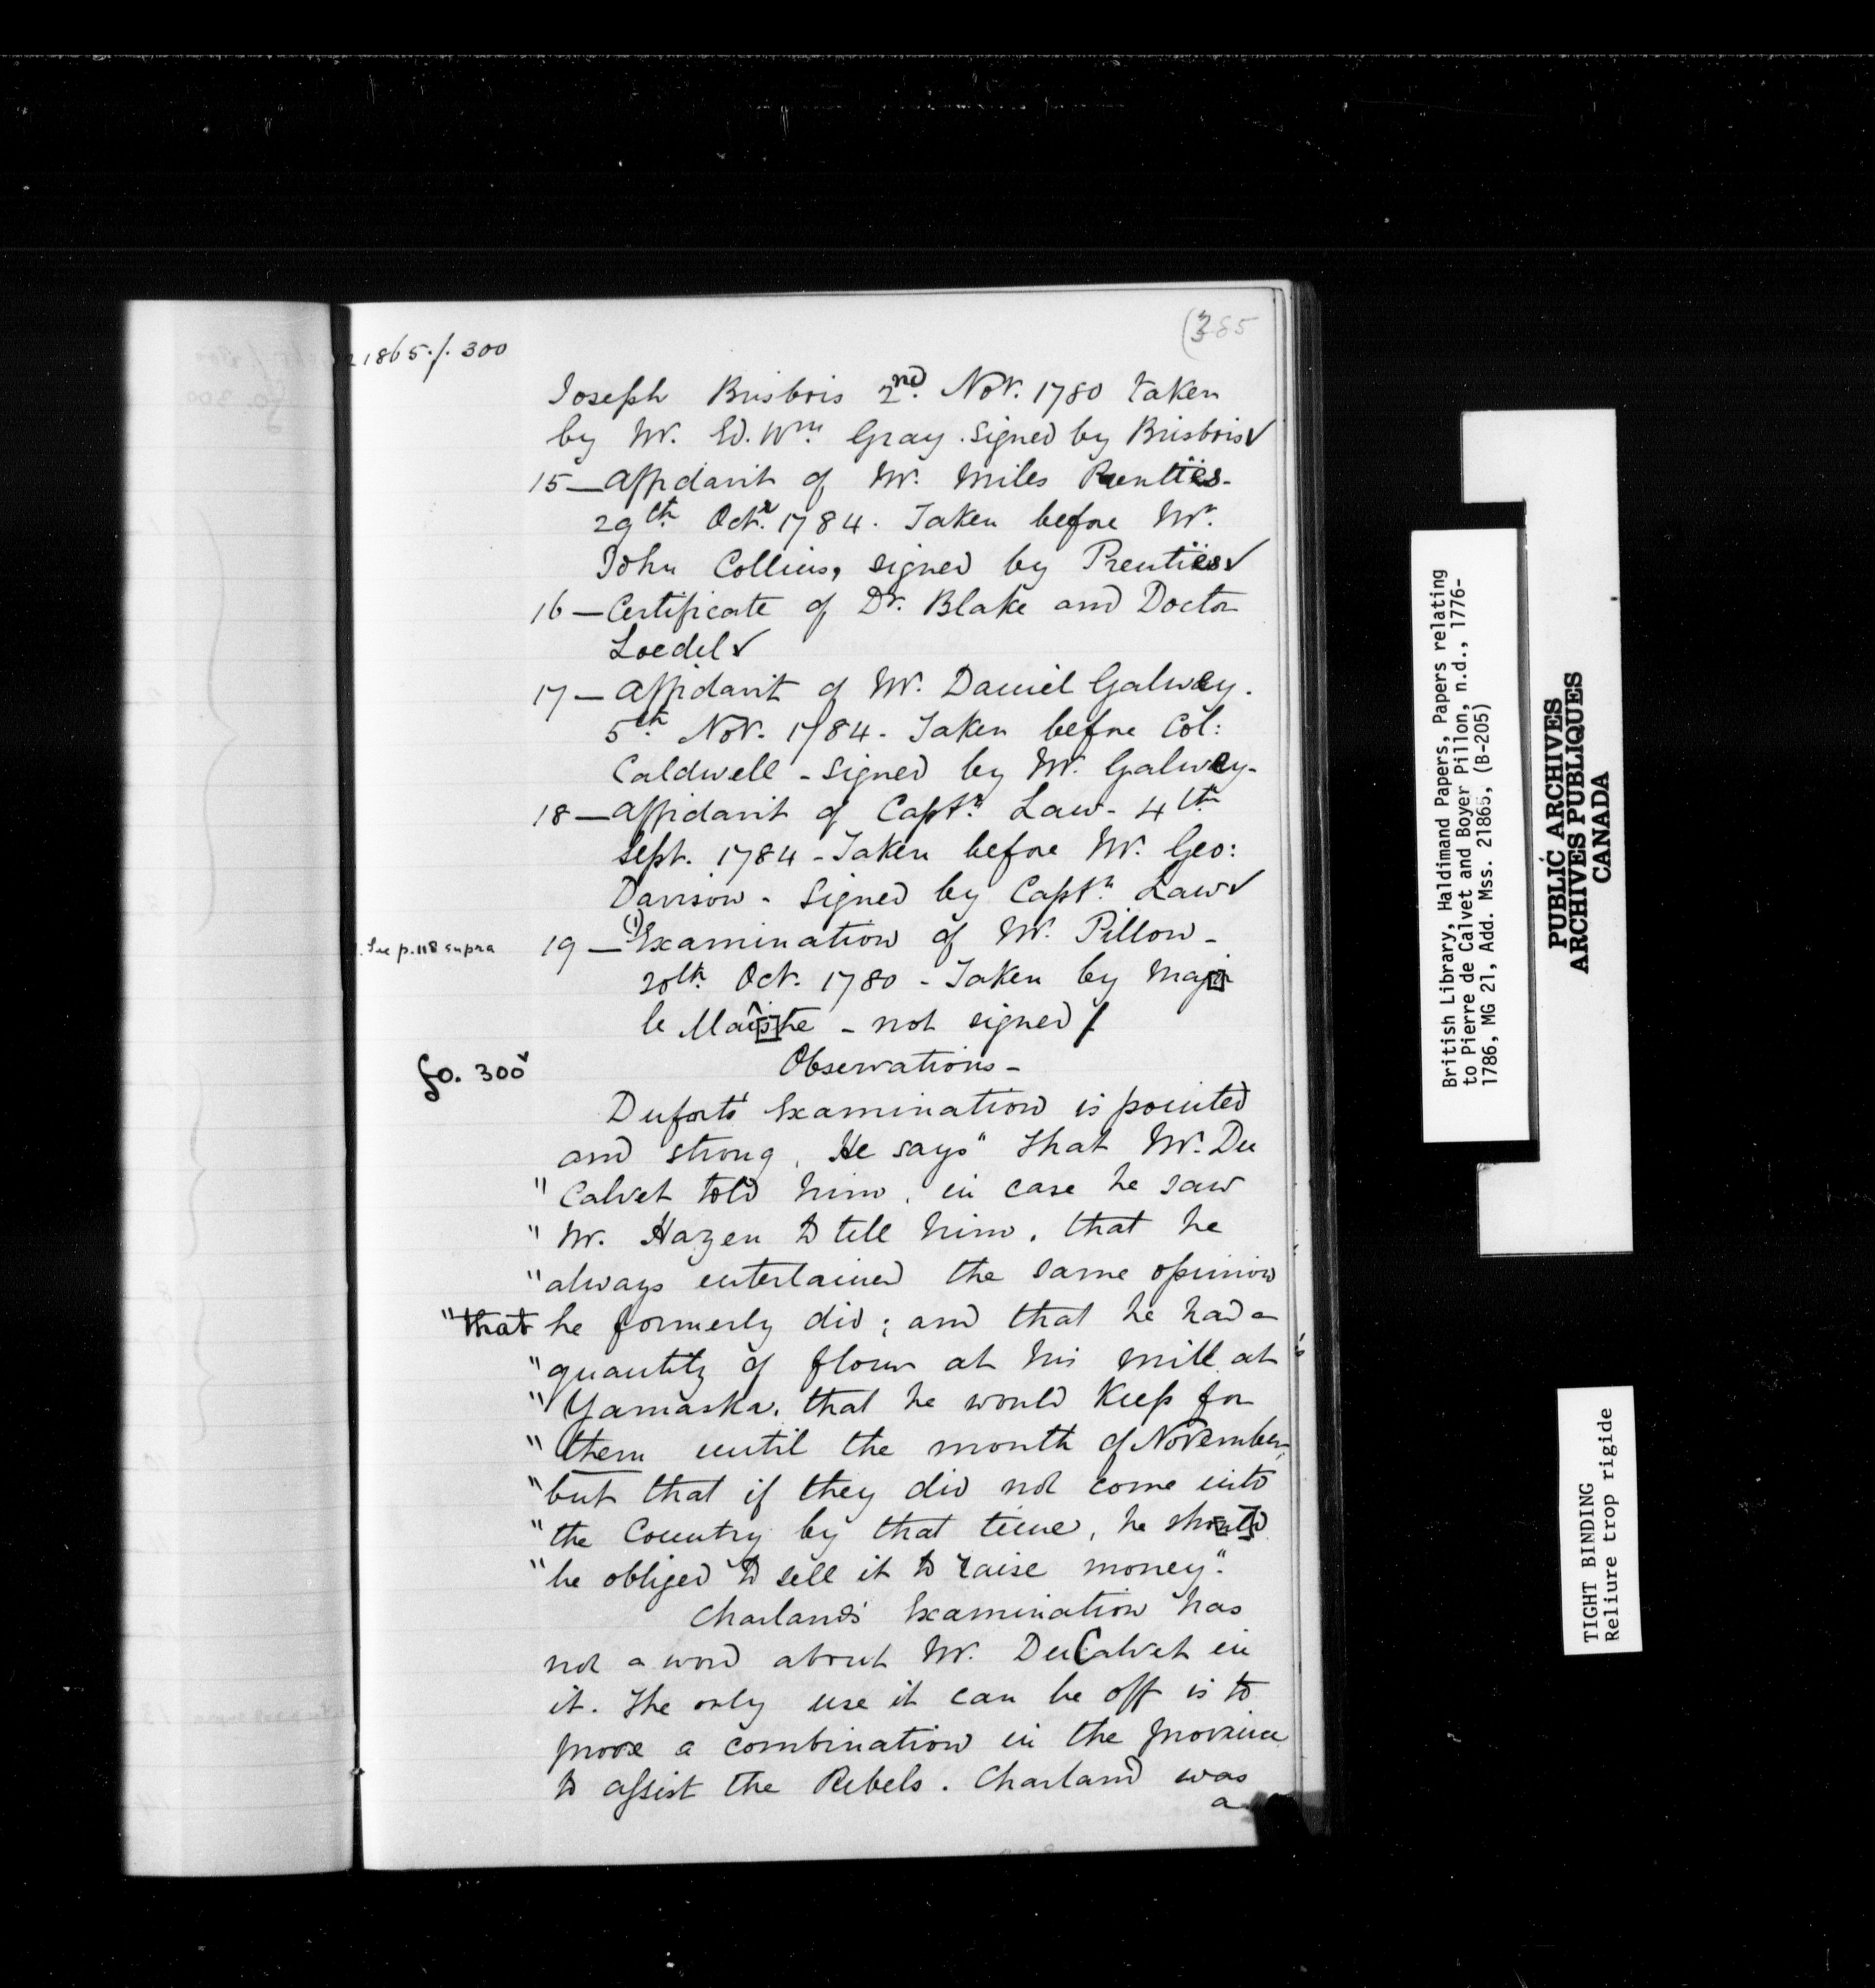 21865. f. 300
(385
Joseph Brisbois 2nd. Nov. 1780 taken
by Mr. Ed. Wm. Gray. Signed by Brisbois✓
15 — Affidavit of Mr. Miles Prentïes-
29th. Octr. 1784. Taken before Mr.
John Collins, signed by Prentïes✓
16 — Certificate of Dr. Blake and Doctor
Loedel✓
17 — Affidavit of Mr. Daniel Galwey.
5th. Nov. 1784 - Taken before Col:
Caldwell - signed by Mr. Galwey-
18 — Affidavit of Captn. Law - 4th
Sept. 1784 - Taken before Mr. Geo:
Davison - Signed by Captn. Law✓
. See p. 118 supra
19 — (1) Examination of Mr. Pillow -
20th. Oct. 1780 - Taken by Major
le Maistre - not signed /
fo. 300v
Observations -
Dufort's Examination is pointed
and strong. He says "that Mr. Du
" Calvet told him, in case he saw
" Mr. Hazen to tell him, that he
" always entertained the same opinion
" that he formerly did; and that he had a
" quantity of flour at his mill at
" Yamaska, that he would keep for
" them until the month of November,
" but that if they did not come into
" the Country by that time, he should
" be obliged to sell it to raise money."
Charland's Examination has
not a word about Mr. DuCalvet in
it. The only use it can be off is to
prove a combination in the province
to assist the Rebels. Charland was
a
British Library, Haldimand Papers, Papers relating
to Pierre de Calvet and Boyer Pillon, n.d., 1776-
1786, MG 21, Add. Mss. 21865, (B-205)
PUBLIC ARCHIVES
ARCHIVES PUBLIQUES
CANADA
TIGHT BINDING
Reliure trop rigide